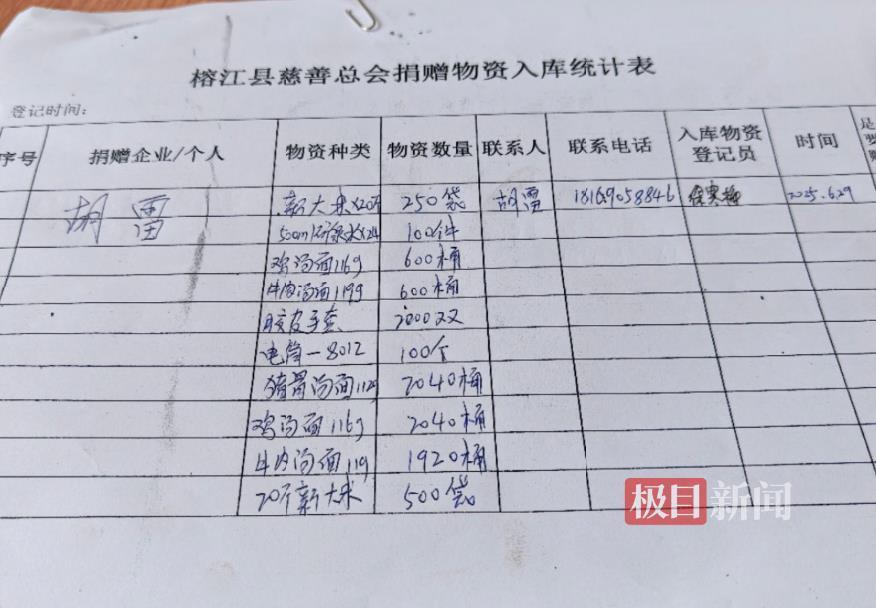 榕江县慈善总会捐赠物资入库统计表
登记时间:
序号 捐赠企业/个人 物资种类 物资数量 联系人 联系电话 入库物资登记员 时间 是
胡雷 新大米×20斤 250袋 胡雷 18169058846 2025.6.29
500ml矿泉水×24 100件
鸡汤面116g 600桶
牛肉汤面119g 600桶
胶皮手套 2000双
电筒-8012 100个
猪骨汤面112g 2040桶
鸡汤面116g 2040桶
牛肉汤面119 1920桶
20斤新大米 500袋
极目新闻